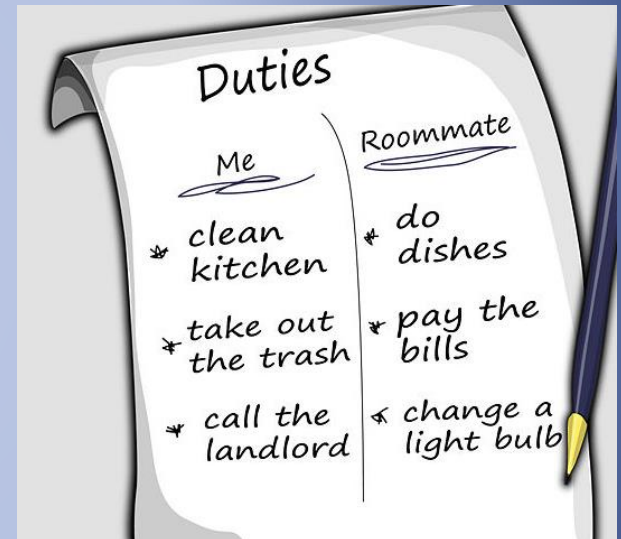 Duties
Me
clean
kitchen
take out
the trash
call the
landlord
Roommate
do
dishes
pay the
bills
change a
light bulb